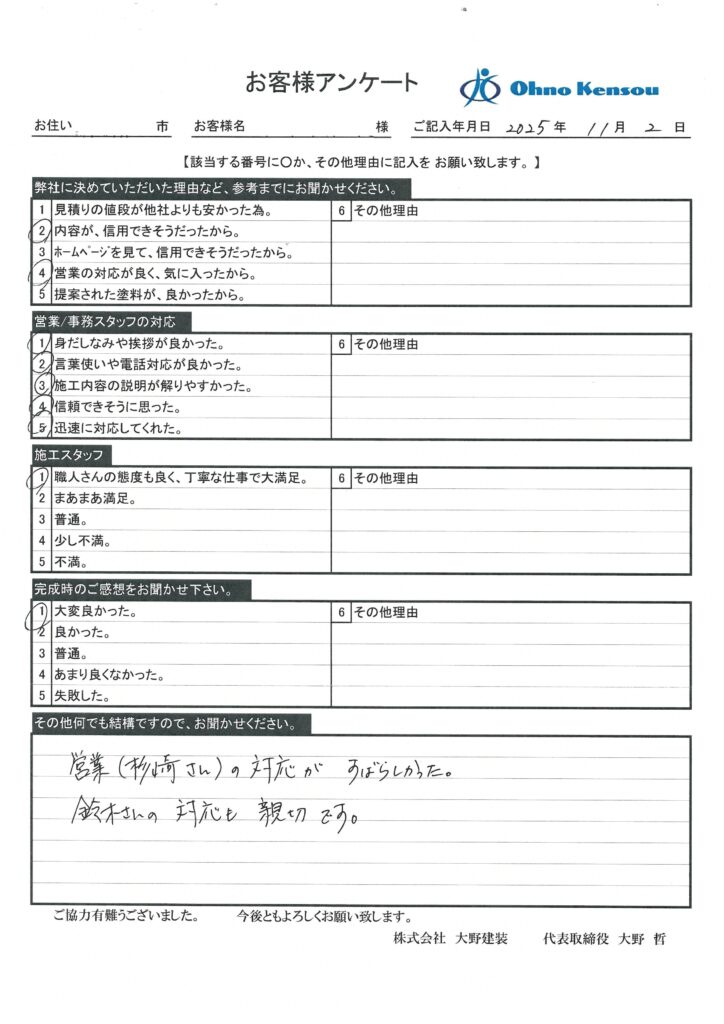 お客様アンケート
Ohno Kensou
お住い 市 お客様名 様 ご記入年月日 2025年 11月 2日
【該当する番号に〇か、その他理由に記入を お願い致します。】
弊社に決めていただいた理由など、参考までにお聞かせください。
1 見積りの値段が他社よりも安かった為。 6 その他理由
2 内容が、信用できそうだったから。
3 ホームページを見て、信用できそうだったから。
4 営業の対応が良く、気に入ったから。
5 提案された塗料が、良かったから。
営業/事務スタッフの対応
1 身だしなみや挨拶が良かった。 6 その他理由
2 言葉使いや電話対応が良かった。
3 施工内容の説明が解りやすかった。
4 信頼できそうに思った。
5 迅速に対応してくれた。
施工スタッフ
1 職人さんの態度も良く、丁寧な仕事で大満足。 6 その他理由
2 まあまあ満足。
3 普通。
4 少し不満。
5 不満。
完成時のご感想をお聞かせ下さい。
1 大変良かった。 6 その他理由
2 良かった。
3 普通。
4 あまり良くなかった。
5 失敗した。
その他何でも結構ですので、お聞かせください。
営業(杉崎さん)の対応が すばらしかった。
鈴木さんの 対応も 親切です。
ご協力有難うございました。 今後ともよろしくお願い致します。
株式会社 大野建装 代表取締役 大野 哲